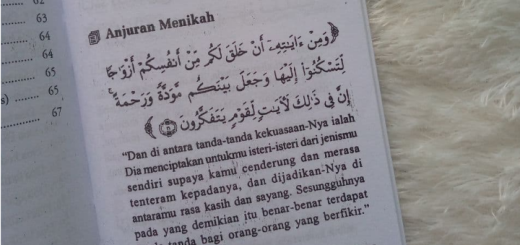 62
63
64
65
s) ..... 65
67
Anjuran Menikah
﴿وَمِنْ ءَايَٰتِهِۦٓ أَنْ خَلَقَ لَكُم مِّنْ أَنفُسِكُمْ أَزْوَٰجًا
لِّتَسْكُنُوٓا۟ إِلَيْهَا وَجَعَلَ بَيْنَكُم مَّوَدَّةً وَرَحْمَةً ۚ
إِنَّ فِى ذَٰلِكَ لَءَايَٰتٍ لِّقَوْمٍ يَتَفَكَّرُونَ﴾
"Dan di antara tanda-tanda kekuasaan-Nya ialah
Dia menciptakan untukmu isteri-isteri dari jenismu
sendiri supaya kamu cenderung dan merasa
tenteram kepadanya, dan dijadikan-Nya di
antaramu rasa kasih dan sayang. Sesungguhnya
pada yang demikian itu benar-benar terdapat
tanda bagi orang-orang yang berfikir."